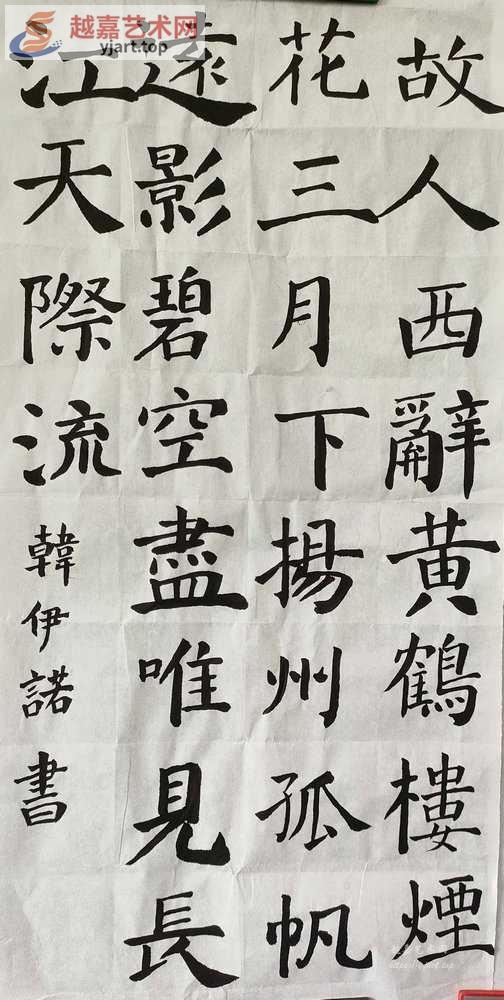 越嘉艺术网
yjart.top
故人西辭黄鶴樓煙
花三月下揚州孤帆
遠影碧空盡唯見長
江天際流
韓伊諾書